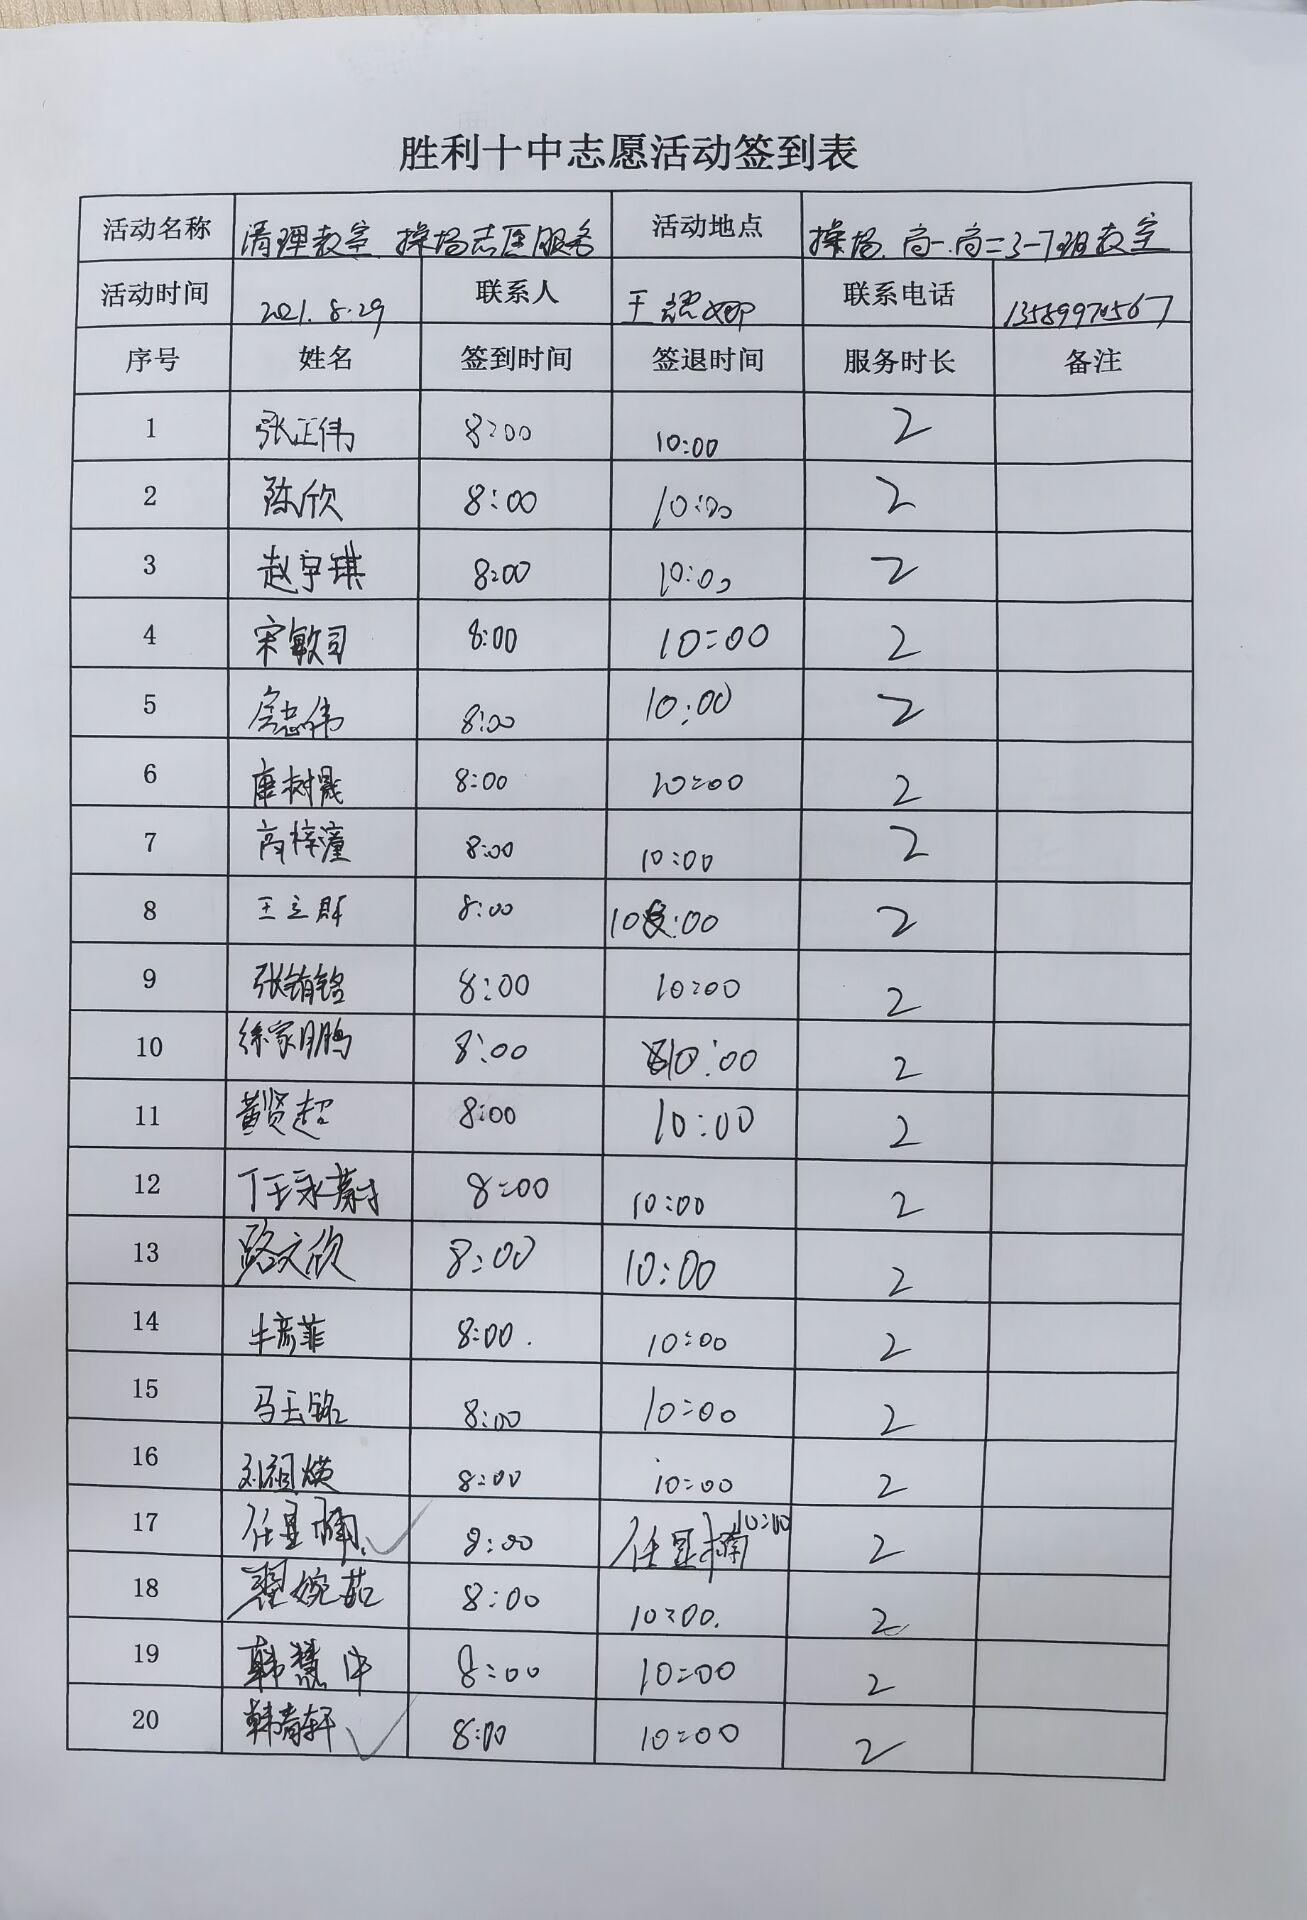 胜利十中志愿活动签到表
活动名称 清理教室、操场志愿服务 活动地点 操场、高一.高二3-7班教室
活动时间 2021.8.29 联系人 王 联系电话
序号 姓名 签到时间 签退时间 服务时长 备注
1 张正伟 8:00 10:00 2
2 陈欣 8:00 10:00 2
3 赵宇琪 8:00 10:00 2
4 宋敏司 8:00 10:00 2
5 志伟 8:00 10:00 2
6 唐树晟 8:00 10:00 2
7 高梓潼 8:00 10:00 2
8 王立 8:00 10:00 2
9 张铭 8:00 10:00 2
10 徐家鹏 8:00 10:00 2
11 黄贤超 8:00 10:00 2
12 丁王永蔚 8:00 10:00 2
13 路文欣 8:00 10:00 2
14 牛彦菲 8:00. 10:00 2
15 马玉铭 8:00 10:00 2
16 刘祖 8:00 10:00 2
17 任显楠 8:00 任显楠 10:00 2
18 婉茹 8:00 10:00. 2
19 韩慧中 8:00 10:00 2
20 韩青轩 8:00 10:00 2